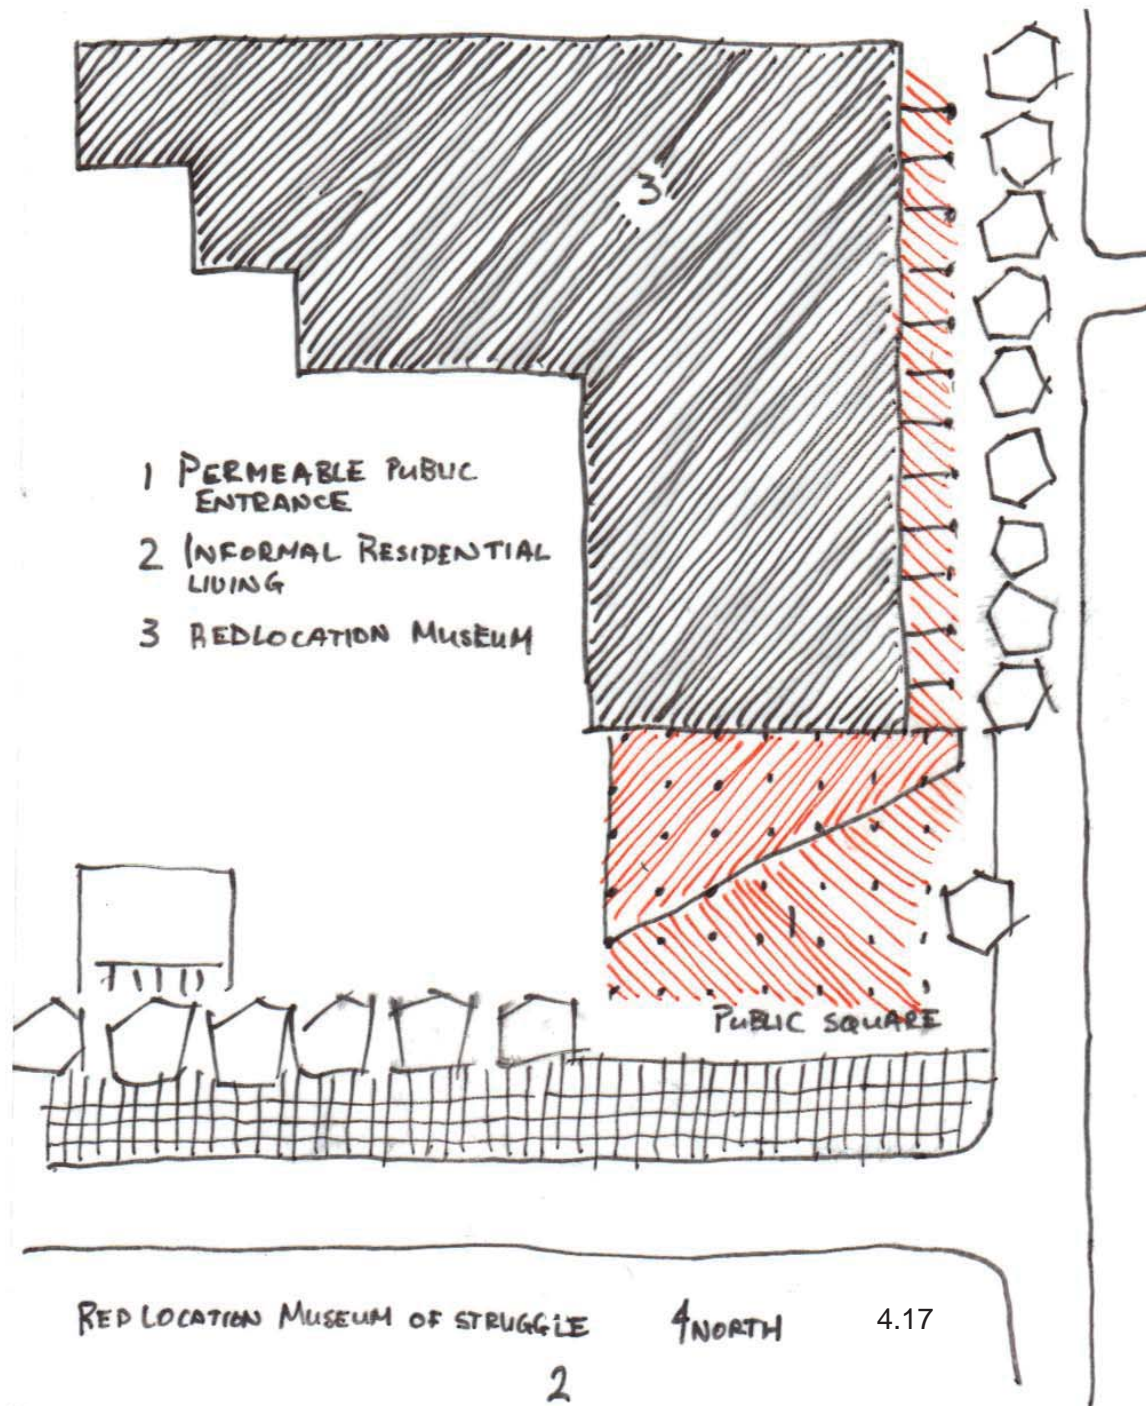 3
1 PERMEABLE PUBLIC
ENTRANCE
2 INFORMAL RESIDENTIAL
LIVING
3 REDLOCATION MUSEUM
1
PUBLIC SQUARE
RED LOCATION MUSEUM OF STRUGGLE NORTH 4.17
2